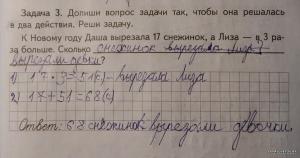 Задача 3. Допиши вопрос задачи так, чтобы она решалась
в два действия. Реши задачу.
К Новому году Даша вырезала 17 снежинок, а Лиза — в 3 ра-
за больше. Сколько снежинок вырезала Лиза
вырезали
1) 17·3=51(с)- вырезала Лиза
2) 17+51=68(с)
Ответ: 68 снежинок вырезали девочки.